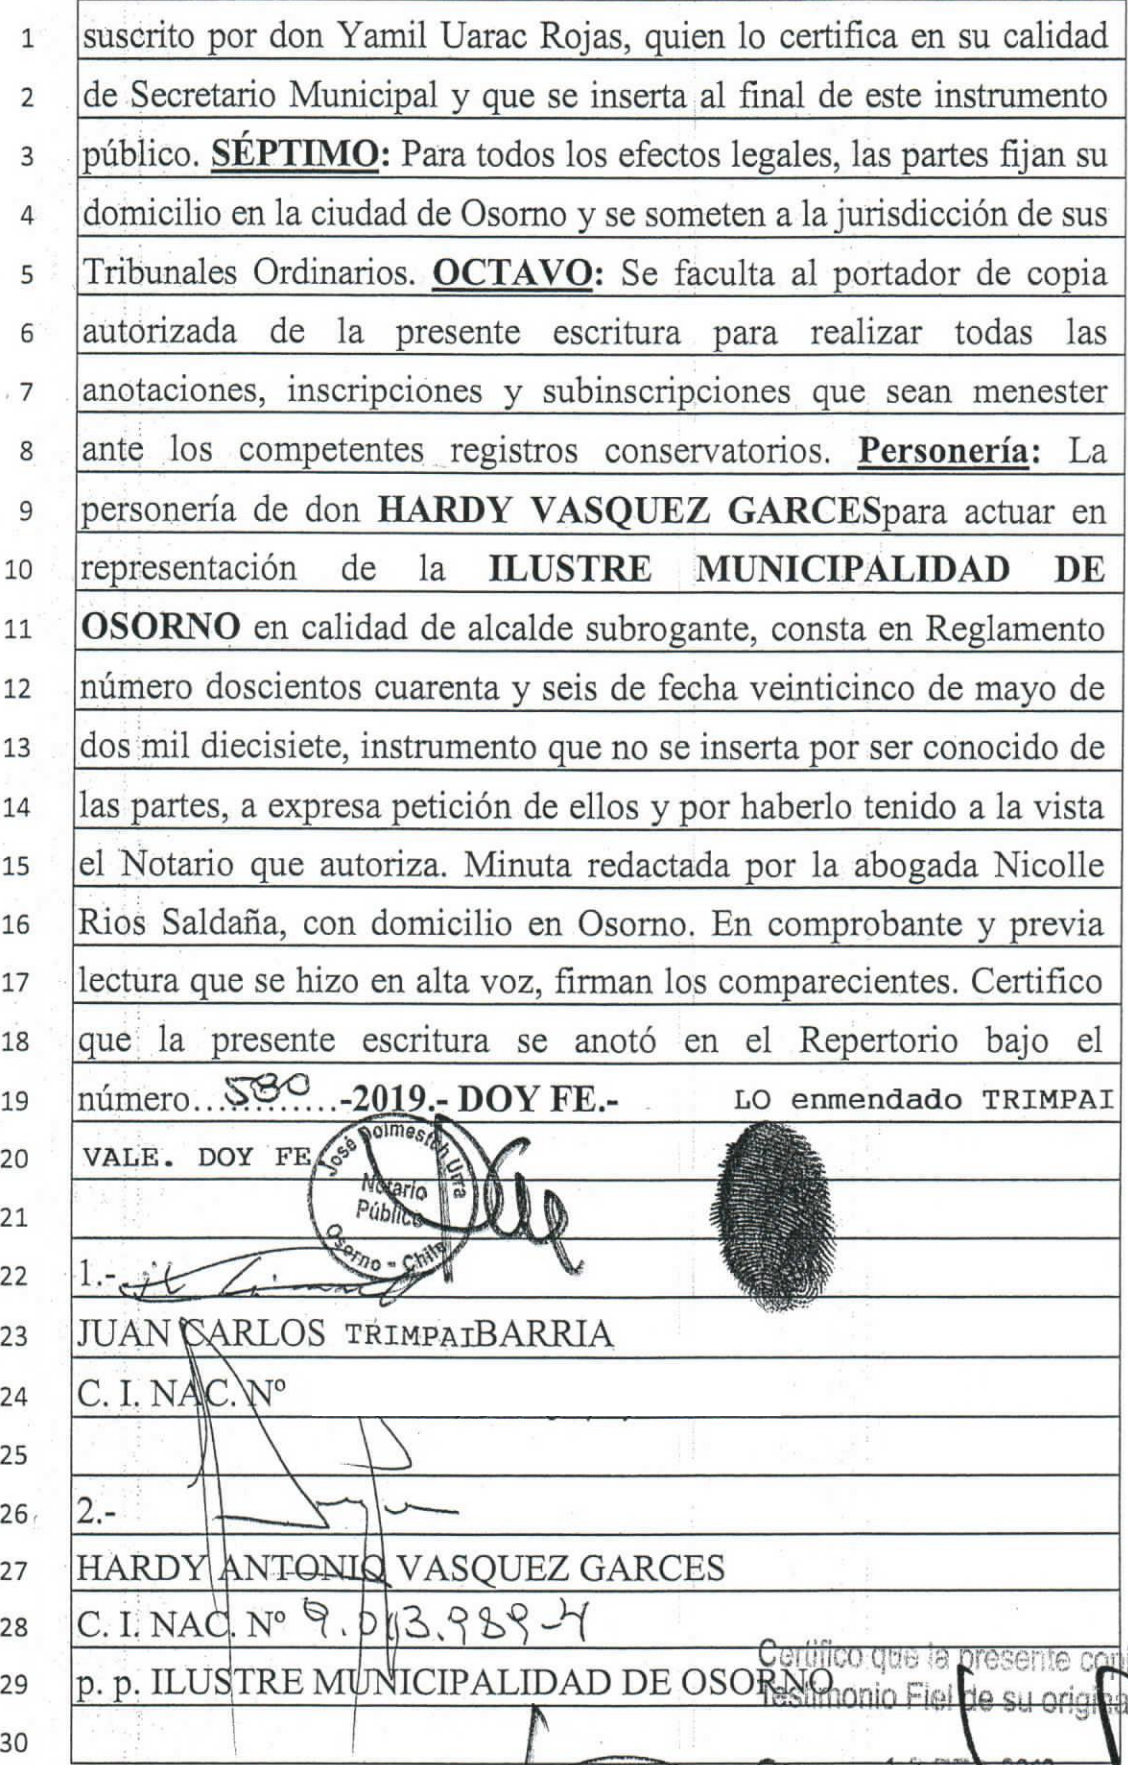 1 suscrito por don Yamil Uarac Rojas, quien lo certifica en su calidad
2 de Secretario Municipal y que se inserta al final de este instrumento
3 público. SÉPTIMO: Para todos los efectos legales, las partes fijan su
4 domicilio en la ciudad de Osorno y se someten a la jurisdicción de sus
5 Tribunales Ordinarios. OCTAVO: Se faculta al portador de copia
6 autorizada de la presente escritura para realizar todas las
7 anotaciones, inscripciones y subinscripciones que sean menester
8 ante los competentes registros conservatorios. Personería: La
9 personería de don HARDY VASQUEZ GARCESpara actuar en
10 representación de la ILUSTRE MUNICIPALIDAD DE
11 OSORNO en calidad de alcalde subrogante, consta en Reglamento
12 número doscientos cuarenta y seis de fecha veinticinco de mayo de
13 dos mil diecisiete, instrumento que no se inserta por ser conocido de
14 las partes, a expresa petición de ellos y por haberlo tenido a la vista
15 el Notario que autoriza. Minuta redactada por la abogada Nicolle
16 Rios Saldaña, con domicilio en Osorno. En comprobante y previa
17 lectura que se hizo en alta voz, firman los comparecientes. Certifico
18 que la presente escritura se anotó en el Repertorio bajo el
19 número...580...-2019.- DOY FE.- LO enmendado TRIMPAI
20 VALE. DOY FE
José Dolmestch Urra
Notario
Público
Osorno - Chile
21
22 1.-
23 JUAN CARLOS TRIMPAIBARRIA
24 C. I. NAC. Nº
25
26 2.-
27 HARDY ANTONIO VASQUEZ GARCES
28 C. I. NAC. Nº 9.013.989-4
Certifico que la presente
29 p. p. ILUSTRE MUNICIPALIDAD DE OSORNO
Testimonio Fiel de su
30